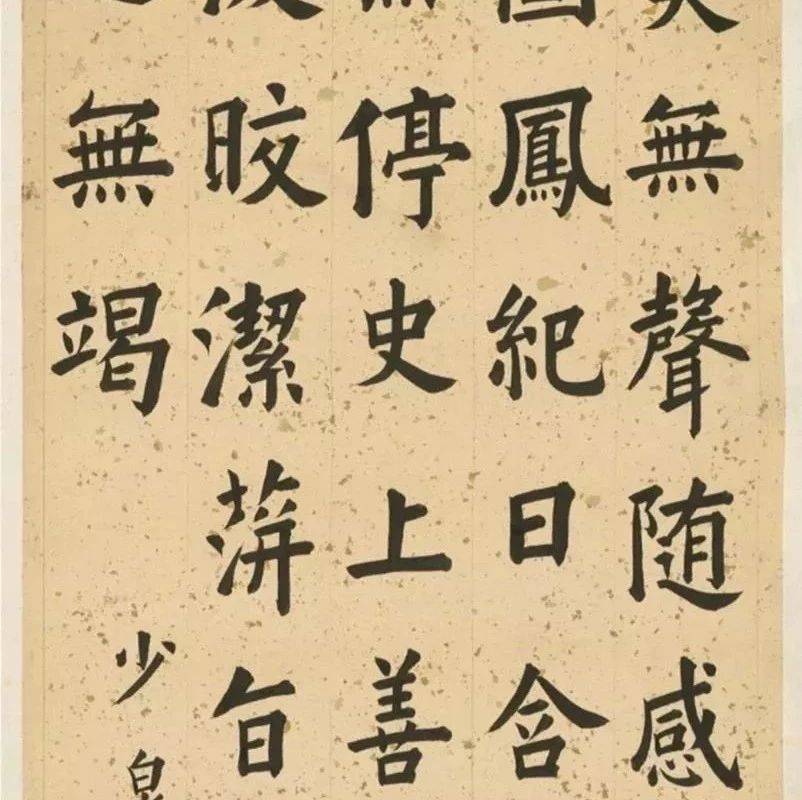 無聲随感
鳳紀日含
停史上善
晈潔蓱旨
無竭
少泉